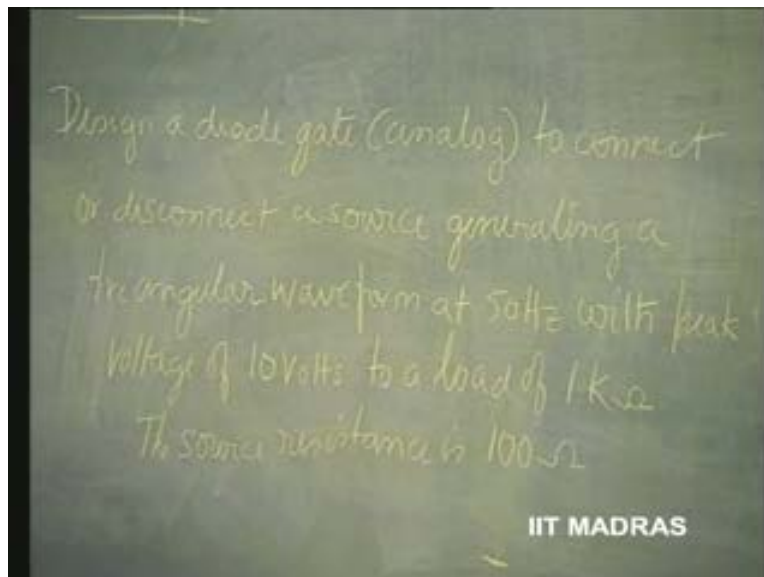 Design a diode gate (analog) to connect
or disconnect a source generating a
triangular waveform at 50Hz with peak
voltage of 10 Volts to a load of 1 K Ω
The source resistance is 100 Ω
IIT MADRAS